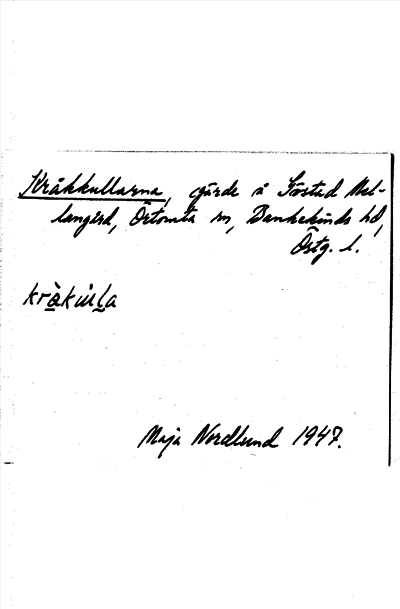 Kråkkullarna, gärde å Sörstad Mel-
langård, Örtomta sn, Bankekinds hd,
Östg. l.
kråkula
Maja Nordlund 1947.